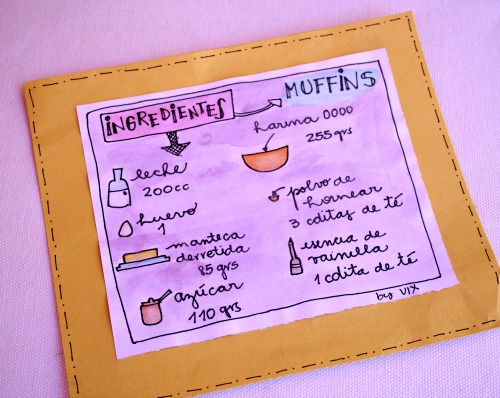 INGREDIENTES
MUFFINS
leche
200cc
huevo
1
manteca
derretida
85 grs
azúcar
110 grs
harina 0000
255 grs
polvo de
hornear
3 cditas de té
esencia de
vainilla
1 cdita de té
by VIX